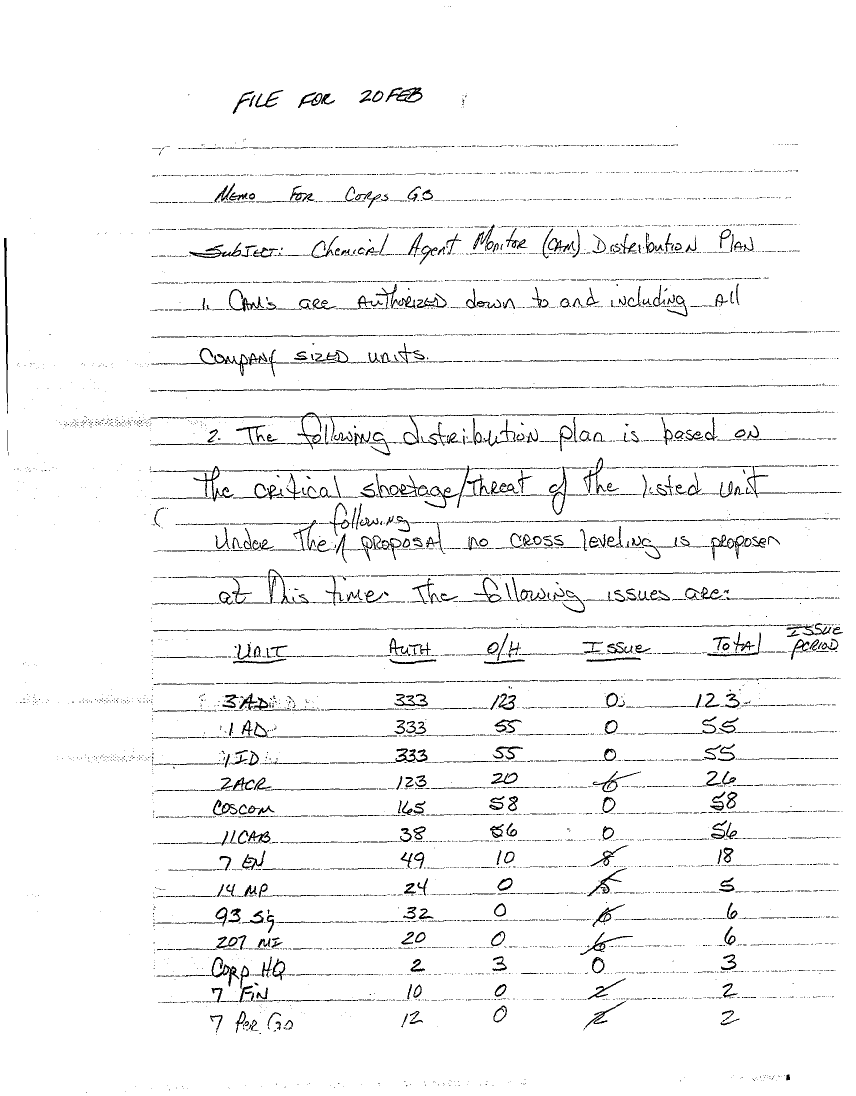 FILE FOR 20 FEB
Memo For Corps G3
Subject: Chemical Agent Monitor (CAM) Distribution Plan
1. CAM's are Authorized down to and including All
Company sized units.
2. The following distribution plan is based on
The critical shortage/threat of the listed unit
following
Under The proposal no cross leveling is proposed
at this time. The following issues are:
Issue
Unit Auth O/H Issue Total Period
3 AD 333 123 0 123
1 AD 333 55 0 55
1 ID 333 55 0 55
2ACR 123 20 6 26
COSCOM 165 58 0 58
11CAB 38 56 0 56
7 EN 49 10 8 18
14 MP 24 0 5 5
93 Sg 32 0 6 6
207 MI 20 0 6 6
Corp HQ 2 3 0 3
7 FIN 10 0 2 2
7 Per Go 12 0 2 2